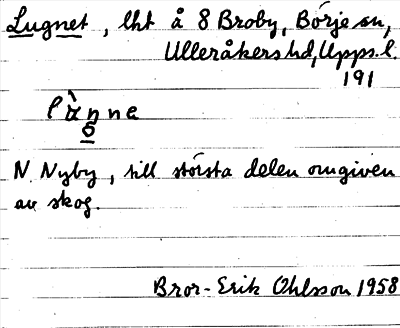 Lugnet, lht å 8 Broby, Börje sn,
Ulleråkers hd, Upps. l.
191
N. Nyby, till största delen omgiven
av skog.
Bror-Erik Ohlsson 1958